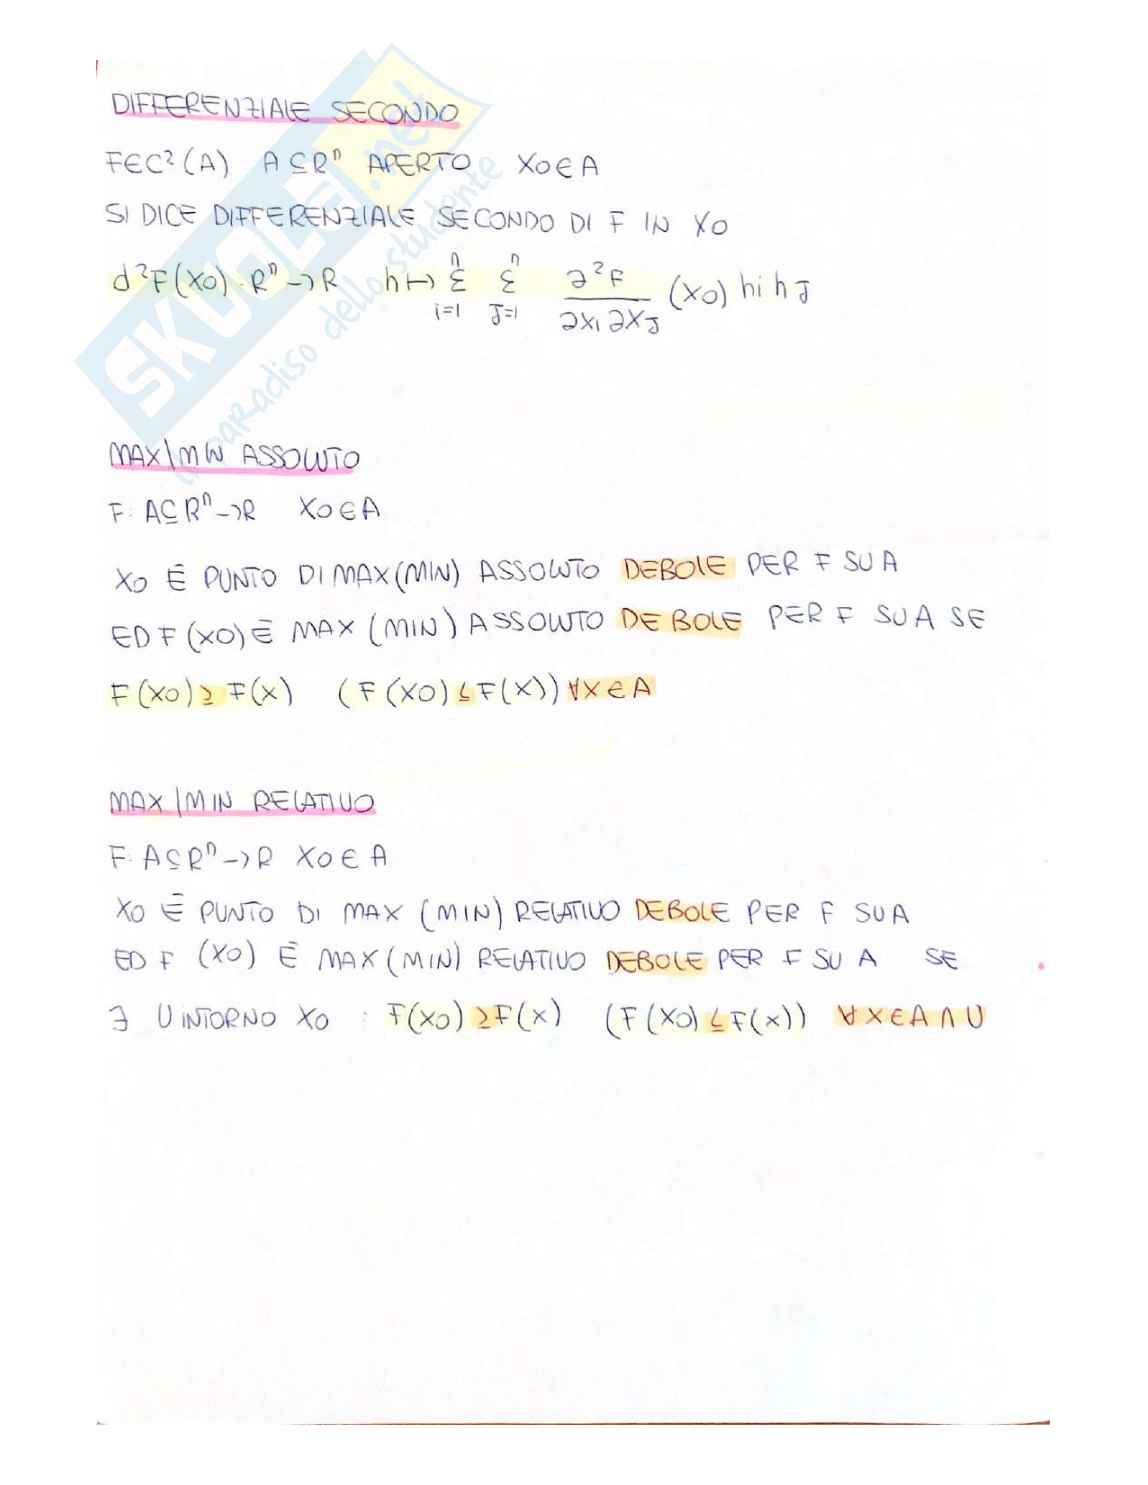 DIFFERENZIALE SECONDO
F∈C²(A) A⊆Rⁿ APERTO X0∈A
SI DICE DIFFERENZIALE SECONDO DI F IN X0
d²F(X0): Rⁿ→R h↦ Σ_{i=1}^{n} Σ_{J=1}^{n} ∂²F/∂Xi∂XJ (X0) hi hJ
MAX\MIN ASSOLUTO
F: A⊆Rⁿ→R X0∈A
X0 È PUNTO DI MAX(MIN) ASSOLUTO DEBOLE PER F SU A
ED F(X0) È MAX (MIN) ASSOLUTO DEBOLE PER F SU A SE
F(X0)≥F(X) (F(X0)≤F(X)) ∀X∈A
MAX|MIN RELATIVO
F: A⊆Rⁿ→R X0∈A
X0 È PUNTO DI MAX (MIN) RELATIVO DEBOLE PER F SU A
ED F (X0) È MAX (MIN) RELATIVO DEBOLE PER F SU A SE
∃ U INTORNO X0 : F(X0)≥F(X) (F(X0)≤F(X)) ∀X∈A∩U
SKUOLA.net
il paradiso dello studente